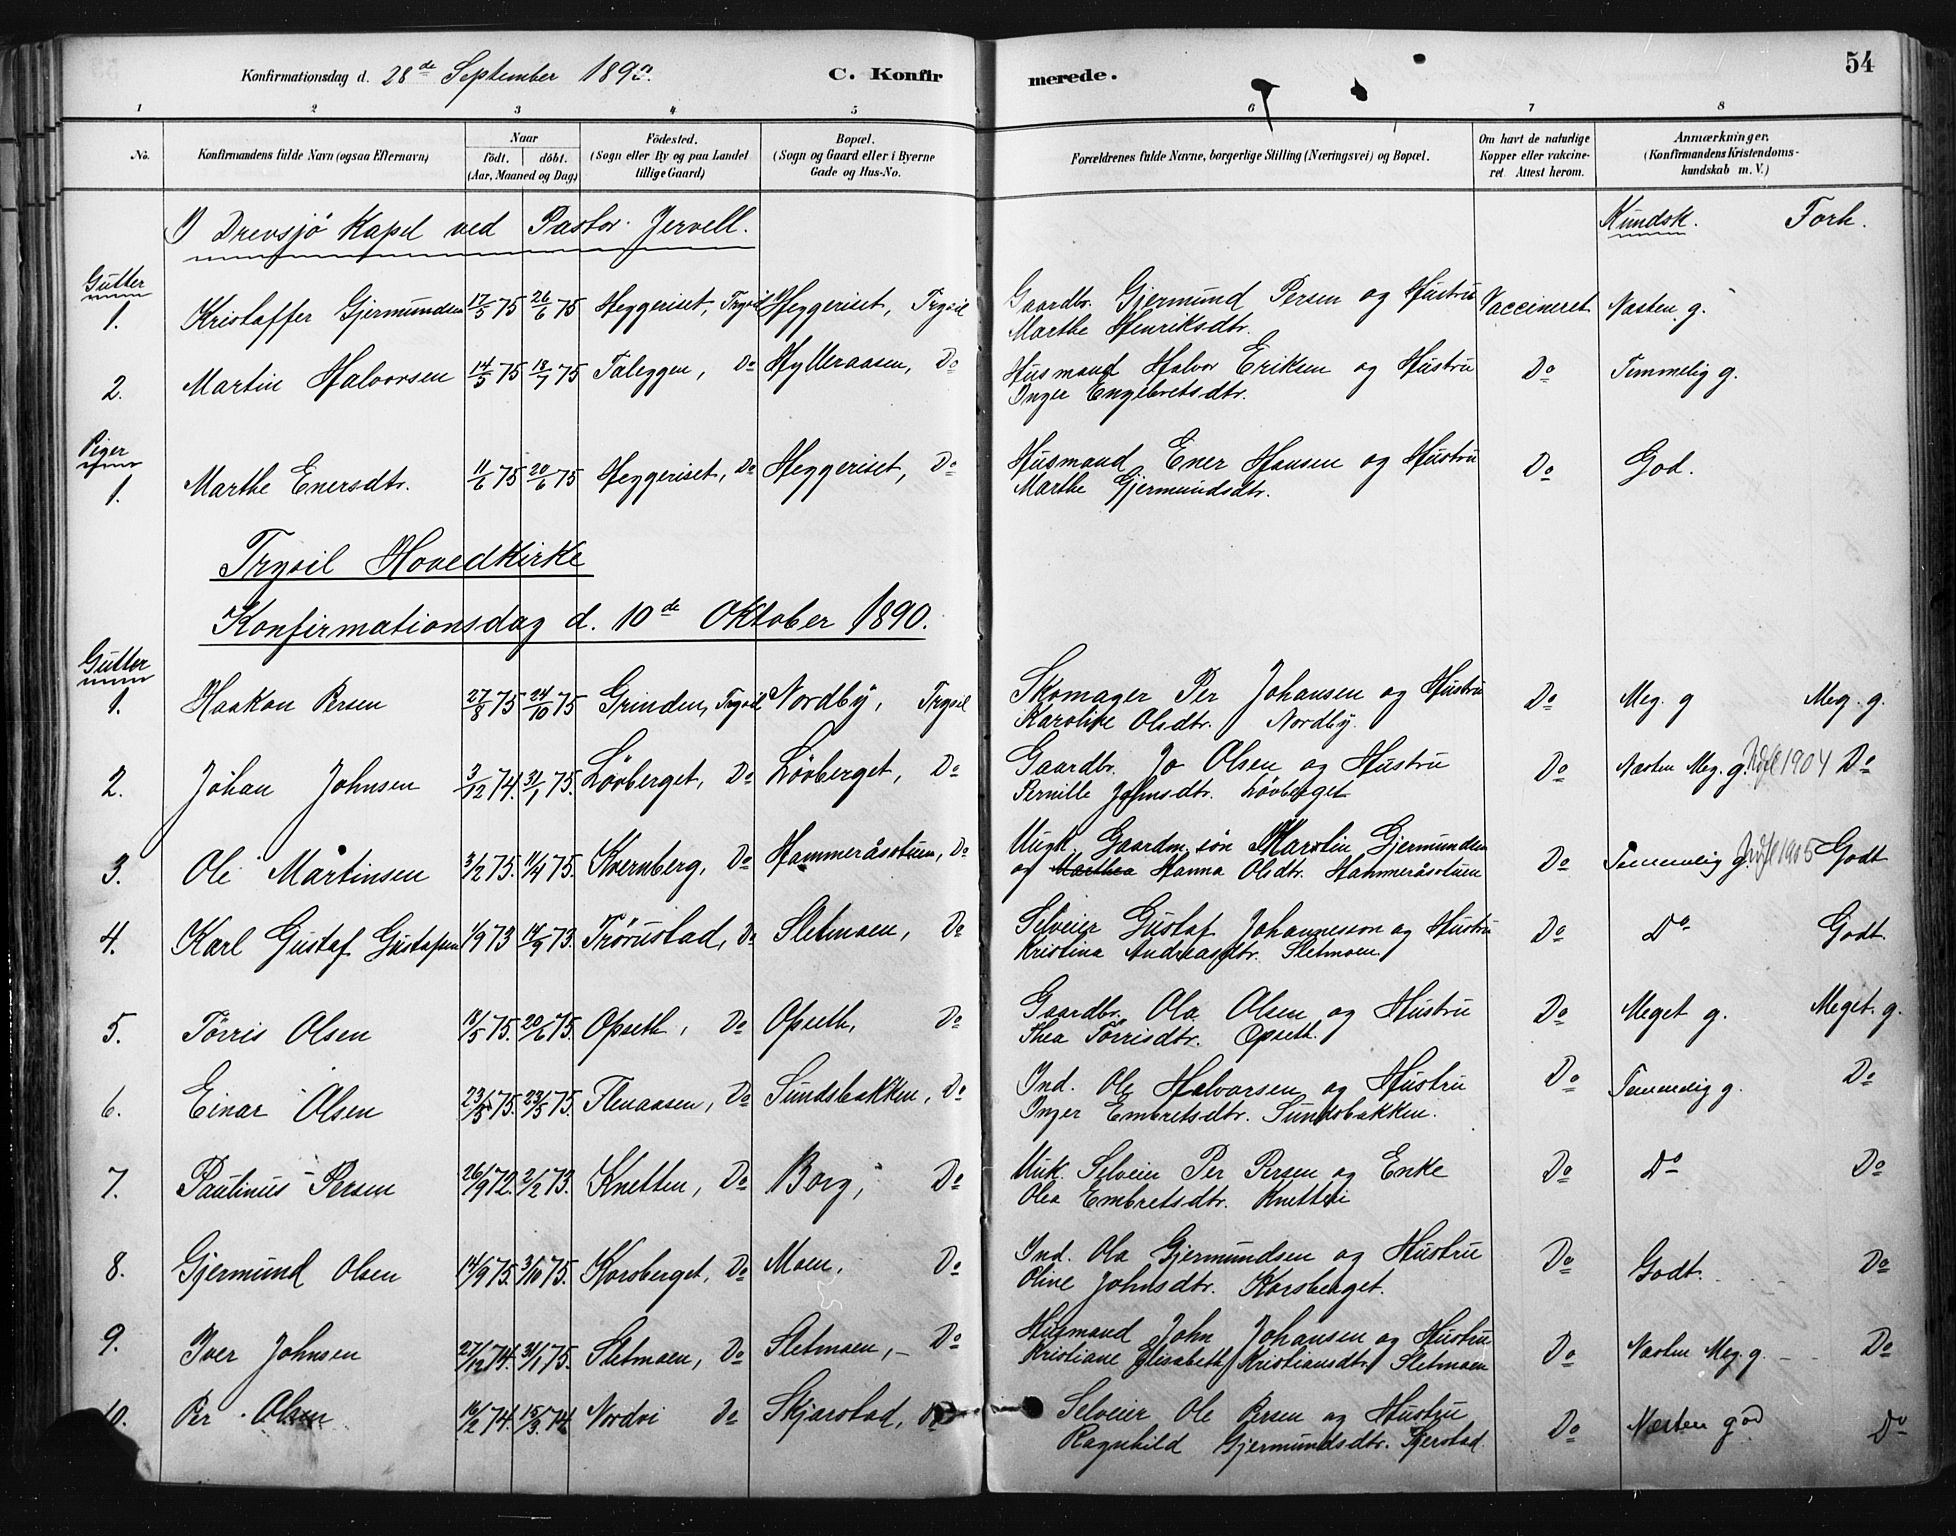 Konfirmationsdag d. 28de September 1890. C. Konfirmerede. 54
1 2 3 4 5 6 7 8
No. Konfirmandens fulde Navn (ogsaa Efternavn) Naar født. døbt. (Aar, Maaned og Dag) Fødested. (Sogn eller By og paa Landet tillige Gaard) Bopæl. (Sogn og Gaard eller i Byerne Gade og Hus-No. Forældrenes fulde Navne, borgerlige Stilling (Næringsvei) og Bopæl. Om havt de naturlige Kopper eller vakcineret. Attest herom. Anmærkninger. (Konfirmandens Kristendomskundskab m. V.)
I Drevsjö Kapel ved Pastor Jervell. Kundsk. Forh.
Gutter
1. Kristaffer Gjermundsen 17/5 75 26/6 75 Heggeriset, Trysil Heggeriset, Trysil Gaardbr. Gjermund Persen og Hustru Vaccineret Næsten g.
Marthe Henriksdtr.
2. Martin Halvorsen 14/5 75 18/7 75 Faleggen, Do Hylleraasen, Do Husmand Halvor Eriksen og Hustru Do Temmelig g.
Inger Engebretsdtr.
Piger
1. Marthe Enersdtr. 11/6 75 20/6 75 Heggeriset, Do Heggeriset, Do Husmand Ener Hansen og Hustru Do God.
Marthe Gjermundsdtr.
Trysil Hovedkirke
Konfirmationsdag d. 10de Oktober 1890.
Gutter
1. Haakon Persen 27/8 75 24/10 75 Grinden, Trysil Nordby, Trysil Skomager Per Johansen og Hustru Do Meg. g Meg. g.
Karolike Olsdtr. Nordby.
2. Johan Johnsen 3/12 74. 31/1 75. Lövberget, Do Lövberget, Do Gaardbr. Jo Olsen og Hustru Do Næsten Meg. g. 1904 Do
Pernille Johnsdtr. Lövberget
3. Ole Martinsen 3/2 75. 11/4 75. Kvernberg, Do Hammeråsstuen, Do Ungk. Gaardm. søn Martin Gjermundsen Do Temmelig g. 1905 Godt
og Marthea Hanna Olsdtr. Hammeråsstuen
4. Karl Gustaf Gustafsen 1/9 73 14/9 73. Trörustad, Do Sletmoen, Do Selveier Gustaf Johannesson og Hustru Do Do Godt
Kristina Andreasdtr. Sletmoen.
5. Törris Olsen 18/5 75. 20/6 75. Opseth, Do Opseth, Do Gaardbr. Ola Olsen og Hustru Do Meget g. Meget. g.
Thea Törrisdtr. Opseth.
6. Einar Olsen 23/5 75. 23/5 75. Flenaasen, Do Sundsbakken, Do Ind. Ole Halvarsen og Hustru Do Temmelig g. Do
Inger Embretsdtr. Sundsbakken.
7. Paulinus Persen 26/9 72. 2/2 73. Knetten, Do Borg, Do Selveier Per Persen og Enke Do Do Do
Olea Embretsdtr. Knetten
8. Gjermund Olsen 14/9 75. 3/10 75. Korsberget, Do Moen, Do Ind. Ola Gjermundsen og Hustru Do Godt. Do
Oline Johnsdtr. Korsberget.
9. Iver Johnsen 27/12 74. 31/1 75. Sletmoen, Do Sletmoen, Do Husmand John Johansen og Hustru Do Næsten Meg. g. Do
Kristiane Elisabeth Kristiansdtr. Sletmoen
10. Per Olsen 16/2 74. 15/3 74 Nordvi Do Skjærstad, Do Selveier Ole Persen og Hustru Do Næsten god Do
Ragnhild Gjermundsdtr. Skjerstad.